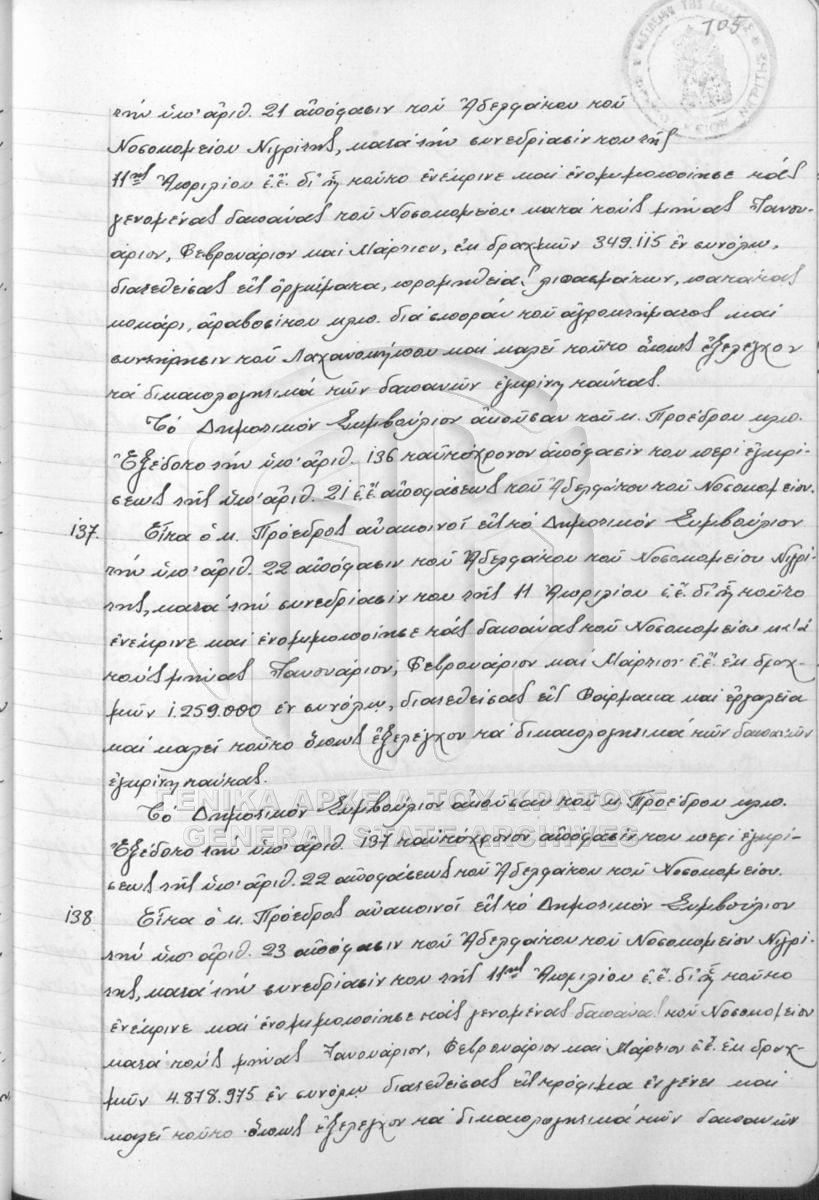 105
τήν ὑπ' ἀριθ. 21 ἀπόφασιν τοῦ Ἀδελφάτου τοῦ
Νοσοκομείου Νιγρίτης, κατά τήν συνεδρίασίν του τῆς
11ης Ἀπριλίου ἐ.ἔ. δι' ἧς τοῦτο ἐνέκρινε καί ἐνομιμοποίησε τάς
γενομένας δαπάνας τοῦ Νοσοκομείου κατά τούς μῆνας Ἰανου-
άριον, Φεβρουάριον καί Μάρτιον, ἐκ δραχμῶν 349.115 ἐν συνόλῳ,
διατεθείσας εἰς ὀργώματα, προμήθειαν λιπασμάτων, πατάτας
κοκάρι, ἀραβοσίτου κλπ. διά σποράν τοῦ ἀγροκτήματος καί
συντήρησιν τοῦ Λαχανοκήπου καί καλεῖ τοῦτο ὅπως ἐξελέγχον
τά δικαιολογητικά τῶν δαπανῶν ἐγκρίνῃ ταύτας.
Τό Δημοτικόν Συμβούλιον ἀκοῦσαν τοῦ κ. Προέδρου κλπ.
Ἐξέδοτο τήν ὑπ' ἀριθ. 136 ταυτόχρονον ἀπόφασίν του περί ἐγκρί-
σεως τῆς ὑπ' ἀριθ. 21 ἐ.ἔ. ἀποφάσεως τοῦ Ἀδελφάτου τοῦ Νοσοκομείου.
137. Εἶτα ὁ κ. Πρόεδρος ἀνακοινοῖ εἰς τό Δημοτικόν Συμβούλιον
τήν ὑπ' ἀριθ. 22 ἀπόφασιν τοῦ Ἀδελφάτου τοῦ Νοσοκομείου Νιγρί-
της, κατά τήν συνεδρίασίν του τῆς 11 Ἀπριλίου ἐ.ἔ. δι' ἧς τοῦτο
ἐνέκρινε καί ἐνομιμοποίησε τάς δαπάνας τοῦ Νοσοκομείου κατά
τούς μῆνας Ἰανουάριον, Φεβρουάριον καί Μάρτιον ἐ.ἔ. ἐκ δραχ-
μῶν 1.259.000 ἐν συνόλῳ, διατεθείσας εἰς Φάρμακα καί ἐργαλεῖα
καί καλεῖ τοῦτο ὅπως ἐξελέγχον τά δικαιολογητικά τῶν δαπανῶν
ἐγκρίνῃ ταύτας.
ΓΕΝΙΚΑ ΑΡΧΕΙΑ ΤΟΥ ΚΡΑΤΟΥΣ
Τό Δημοτικόν Συμβούλιον ἀκοῦσαν τοῦ κ. Προέδρου κλπ.
GENERAL STATE ARCHIVES
Ἐξέδοτο τήν ὑπ' ἀριθ. 137 ταυτόχρονον ἀπόφασίν του περί ἐγκρί-
σεως τῆς ὑπ' ἀριθ. 22 ἀποφάσεως τοῦ Ἀδελφάτου τοῦ Νοσοκομείου.
138 Εἶτα ὁ κ. Πρόεδρος ἀνακοινοῖ εἰς τό Δημοτικόν Συμβούλιον
τήν ὑπ' ἀριθ. 23 ἀπόφασιν τοῦ Ἀδελφάτου τοῦ Νοσοκομείου Νιγρί-
της, κατά τήν συνεδρίασίν του τῆς 11ης Ἀπριλίου ἐ.ἔ. δι' ἧς τοῦτο
ἐνέκρινε καί ἐνομιμοποίησε τάς γενομένας δαπάνας τοῦ Νοσοκομείου
κατά τούς μῆνας Ἰανουάριον, Φεβρουάριον καί Μάρτιον ἐ.ἔ. ἐκ δραχ-
μῶν 4.878.975 ἐν συνόλῳ διατεθείσας εἰς τρόφιμα ἐν γένει καί
καλεῖ τοῦτο ὅπως ἐξελέγχον τά δικαιολογητικά τῶν δαπανῶν